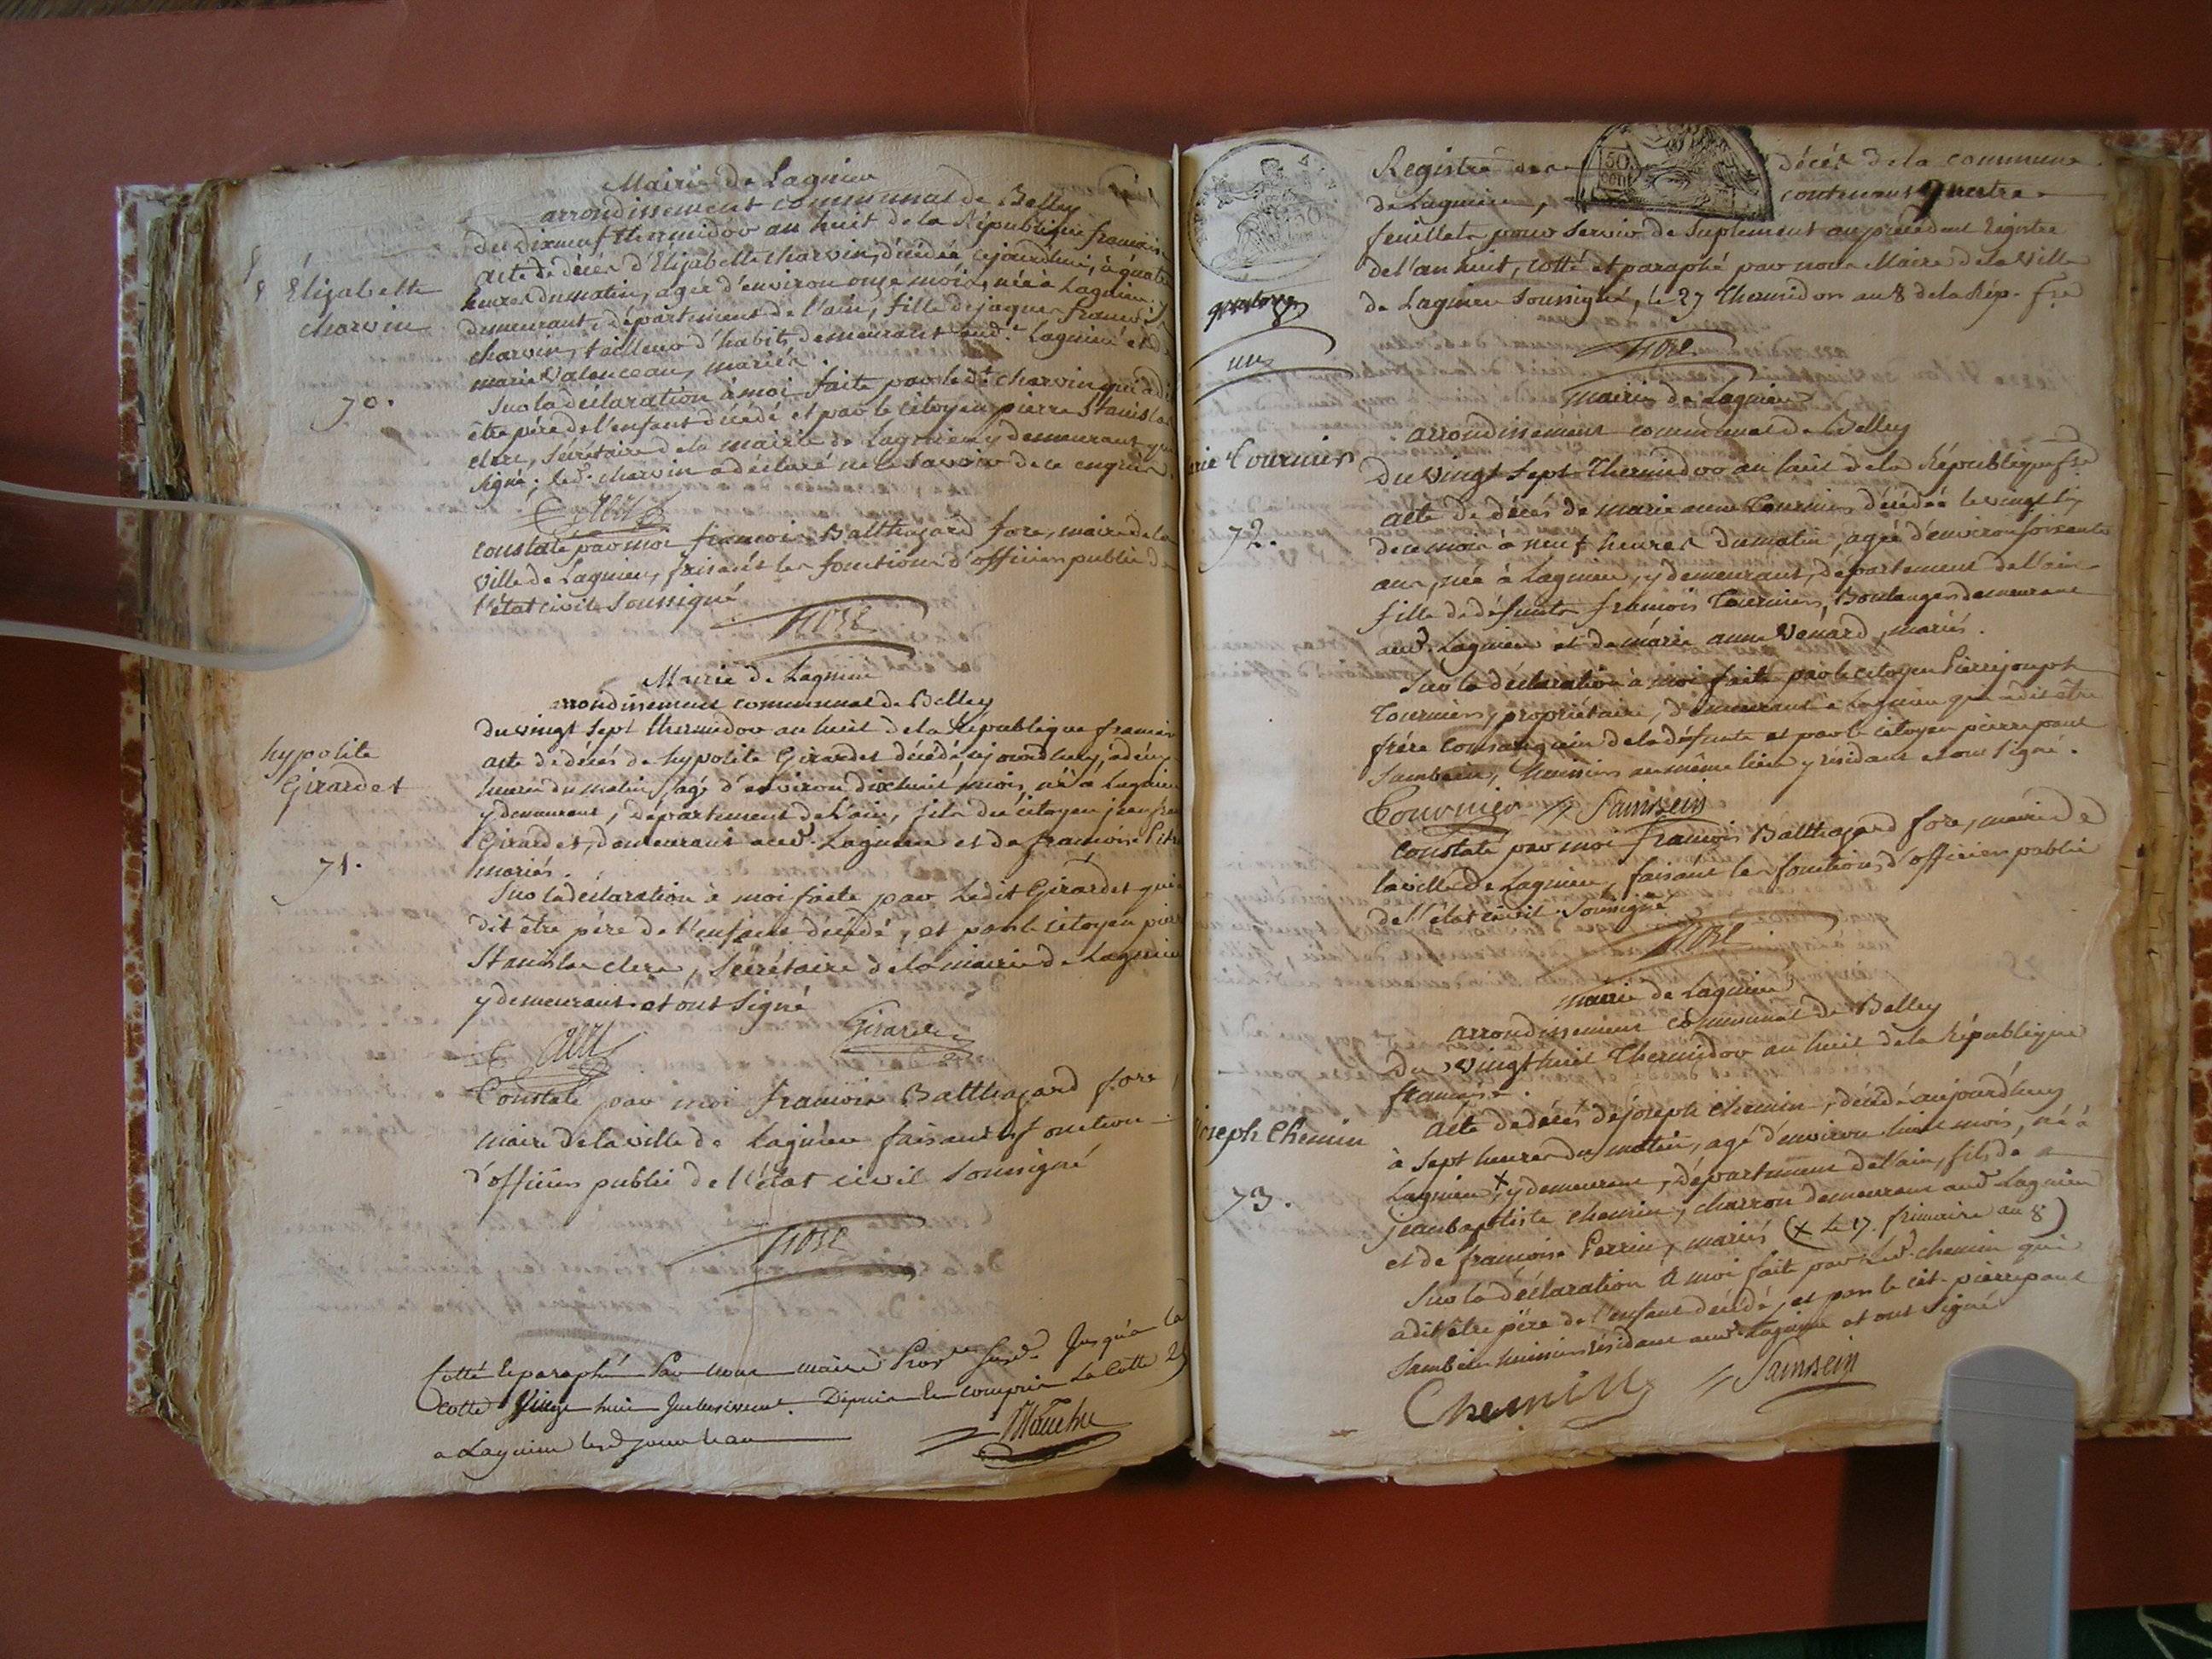 Mairie de Lagnieu
arrondissement communal de Belley
du dixneuf thermidor an huit de la République française
Elizabeth
Charvin
70.
acte de décés d'Elizabeth charvin, décédée cejourdhui, à quatre
heures du matin, agée d'environ onze mois, née à Lagnieu y
demeurant, département de l'ain, fille de jaques françois
charvin, tailleur d'habits demeurant aud.t Lagnieu et de
marie Valenceau, mariés.
Sur la déclaration à moi faite par led.t charvin qui a dit
être pére de l'enfant décédé et par le citoyen pierre Stanislas
clere, sécrétaire de la mairie de Lagnieu y demeurant qui
signé; led.t charvin a déclaré ne le savoir de ce enquis.
constaté par moi françois Balthazard fore, maire de la
ville de Lagnieu, faisant les fonctions d'officier public de
l'état civil soussigné
fore
Mairie de Lagnieu
arrondissement communal de Belley
du vingt sept thermidor an huit de la République française
hypolite
Girardet
71.
acte de décés de hypolite Girardet décédé cejourdhuy, à deux
heures du matin, agé d'environ dixhuit mois, né à Lagnieu
y demeurant, département de l'ain, fils du citoyen jean
Girardet, demeurant aud.t Lagnieu et de francoise
mariés.
Sur la déclaration à moi faite par Ledit Girardet qui a
dit être pére de l'enfant décédé, et par le citoyen pierre
Stanislas clere, sécrétaire de la mairie de Lagnieu
y demeurant et ont signé
Girardet
Constaté par moi françois Balthazard fore,
maire de la ville de Lagnieu faisant les fonctions
d'officier public de l'état civil soussigné
fore
Cotté et paraphé Par nous maire Prov.re susd. Jusqu'a la
Cotte vingt huit Inclusivement. Depuis et compris La Cotte 25
a Lagnieu lesd. jour et an
Registre des décés de la commune
50 cent
de Lagnieu, contenant quatre
feuillets pour servir de suplement au précédent Registre
de l'an huit, cotté et paraphé par nous Maire de la ville
de Lagnieu soussigné, le 27 Thermidor an 8 de la Rép. fse
quatorze
une
fore
mairie de Lagnieu
arrondissement communal de Belley
Tournier
72.
du vingt sept Thermidor an huit de la République fse
acte de décés de marie anne Tournier décédée le vingt six
de ce mois à neuf heures du matin, agée d'environ soixante
ans, née à Lagnieu, y demeurant, département de l'ain
fille de défunts françois Tournier, Boulanger demeurant
aud. Lagnieu et de marie anne Venard, mariés.
Sur la déclaration à moi faite par le citoyen Pierre joseph
Tournier, propriétaire, demeurant à Lagnieu qui a dit être
frére consanguin de la défunte et par le citoyen pierre paul
Sambein, huissier au même lieu y résidant et ont signé.
Tournier Sambein
Constaté par moi François Balthazard fore, maire de
la ville de Lagnieu, faisant les fonctions d'officier public
de l'état civil soussigné
fore
mairie de Lagnieu
arrondissement communal de Belley
Du vingt huit Thermidor an huit de la République
française.
Joseph Chemin
73.
Acte de décés de joseph chemin, décédé aujourdhuy
à sept heures du matin, agé d'environ huit mois, né à
Lagnieu, x y demeurant, département de l'ain, fils de
jean baptiste chemin, charron demeurant aud. Lagnieu
et de françoise Perrin, mariés (x Le 17. frimaire an 8)
Sur la déclaration à moi faite par Led. chemin qui
a dit être pére de l'enfant décédé, et par le cit. pierre paul
Sambein huissier résidant aud. Lagnieu et ont signé
Chemin Sambein